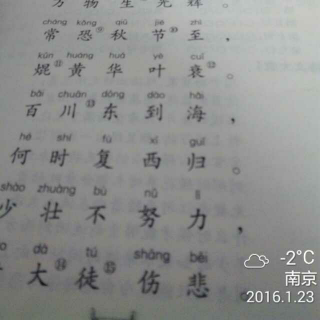 万物生光辉。
cháng kǒng qiū jié zhì
常恐秋节至，
kūn huáng huā yè cuī
焜⑪黄华叶衰⑫。
bǎi chuān dōng dào hǎi
百川⑬东到海，
hé shí fù xī guī
何时复西归。
shào zhuàng bù nǔ lì
少壮不努力，
dà tú shāng bēi
大⑭徒⑮伤悲。
-2°C
南京
2016.1.23